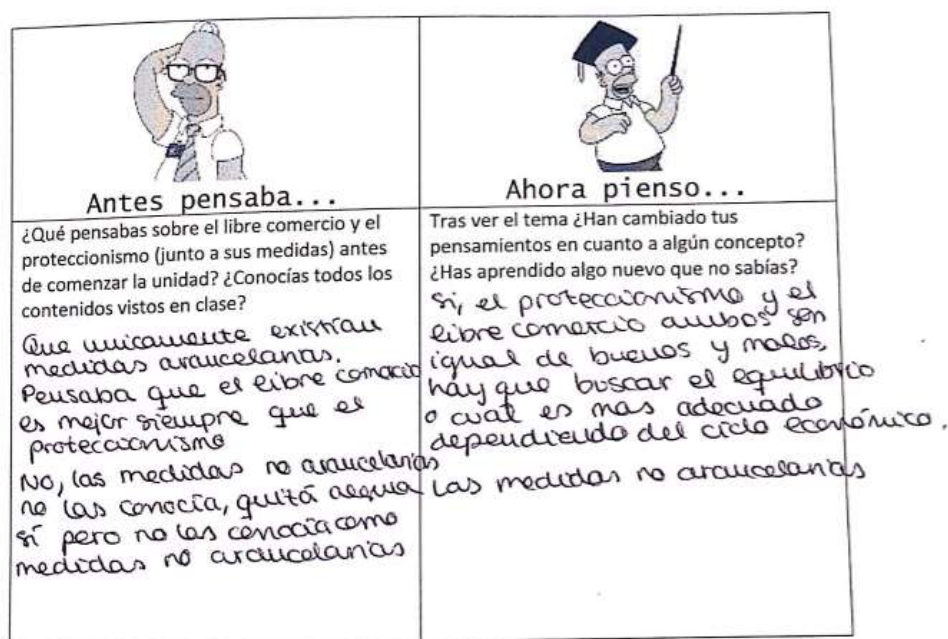 Antes pensaba...
¿Qué pensabas sobre el libre comercio y el
proteccionismo (junto a sus medidas) antes
de comenzar la unidad? ¿Conocías todos los
contenidos vistos en clase?
Que unicamente existían
medidas arancelarias.
Pensaba que el libre comercio
es mejor siempre que el
proteccionismo
No, las medidas no arancelarias
no las conocía, quizá alguna
sí pero no las conocía como
medidas no arancelarias
Ahora pienso...
Tras ver el tema ¿Han cambiado tus
pensamientos en cuanto a algún concepto?
¿Has aprendido algo nuevo que no sabías?
Si, el proteccionismo y el
libre comercio ambos son
igual de buenos y malos,
hay que buscar el equilibrio
o cual es mas adecuado
dependiendo del ciclo económico.
Las medidas no arancelarias